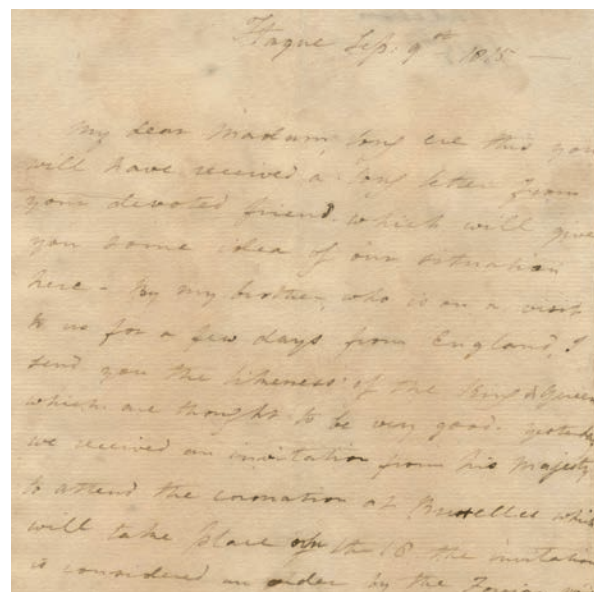 Hague Sep. 9th 1815 —
My dear Madam, long ere this you
will have received a long letter from
your devoted friend which will give
you some idea of our situation
here - By my brother, who is on a visit
to us for a few days from England, I
send you the likeness of the King & Queen
which are thought to be very good. yesterday
we received an invitation from his Majesty
to attend the coronation at Bruxelles which
will take place on the 18 the invitation
is considered an order by the